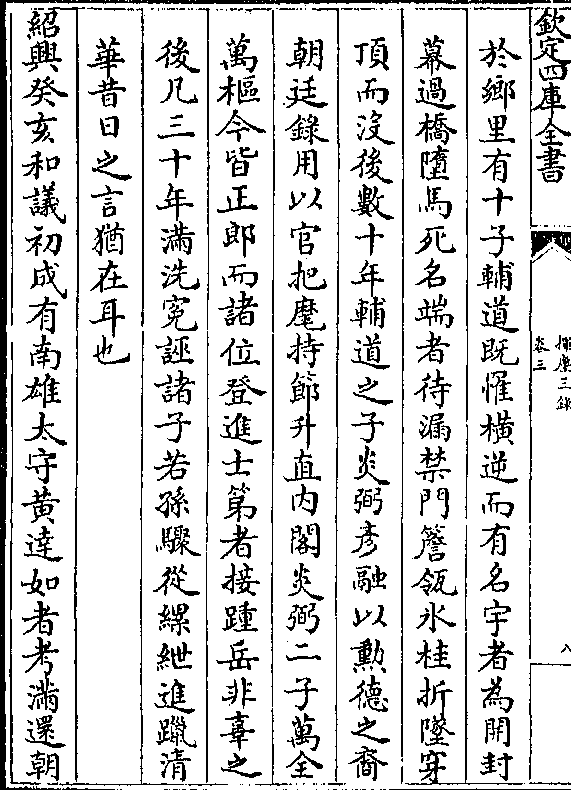 欽定四庫全書
揮麈三錄
卷三
八
於鄉里有十子輔道既懼橫逆而有名宇者為開封
幕過橋墮馬死名端者待漏禁門簷瓴氷柱折墜穿
頂而沒後數十年輔道之子炎弼彦融以勲德之裔
朝廷錄用以官把麾持節升直内閣炎弼二子萬全
萬樞今皆正郎而諸位登進士第者接踵岳非辜之
後凡三十年滿洗寃誣諸子若孫驟從縲紲進躐清
華昔日之言猶在耳也
紹興癸亥和議初成有南雄太守黄達如者考滿還朝